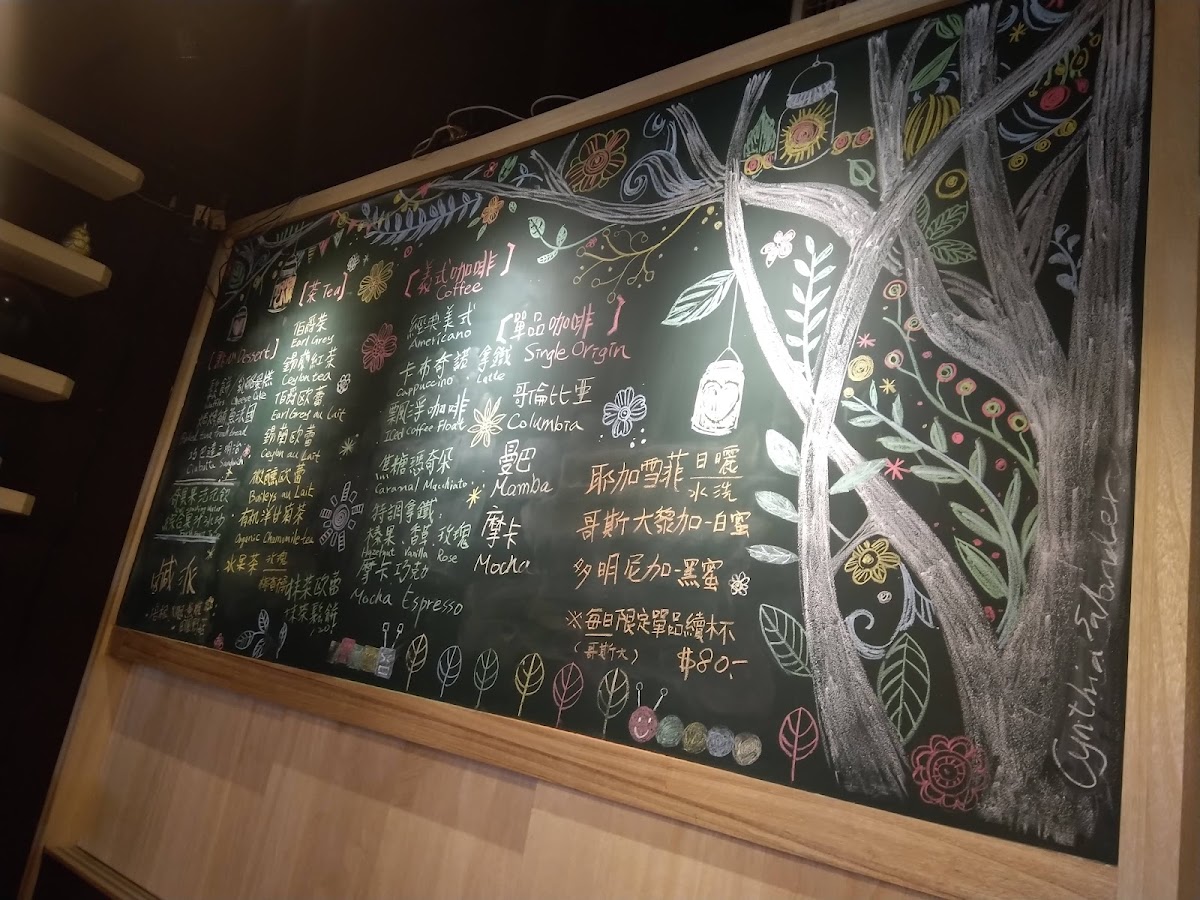 [茶 Tea]
伯爵茶
Earl Grey
錫蘭紅茶
Ceylon tea
伯爵歐蕾
Earl Grey au Lait
錫蘭歐蕾
Ceylon au Lait
微醺歐蕾
Baileys au Lait
有机洋甘菊茶
Organic Chamomile tea
水果茶 玫瑰
抹茶歐蕾
抹茶鬆餅
/120
Dessert]
Cheese Cake
Ciabatta Sandwich
鹹派
[義式咖啡]
Coffee
經典美式
Americano
卡布奇諾 拿鐵
Cappuccino Latte
漂浮咖啡
Iced Coffee Float
焦糖瑪奇朵
Caramal Macchiato
特調拿鐵:
榛果、香草、玫瑰
Hazelnut Vanilla Rose
摩卡巧克力
Mocha Espresso
[單品咖啡]
Single Origin
哥倫比亞
Columbia
曼巴
Mamba
摩卡
Mocha
耶加雪菲 日曬
水洗
哥斯大黎加-白蜜
多明尼加-黑蜜
※每日限定單品續杯
(哥斯大) $80.-
Cynthia &Wonder